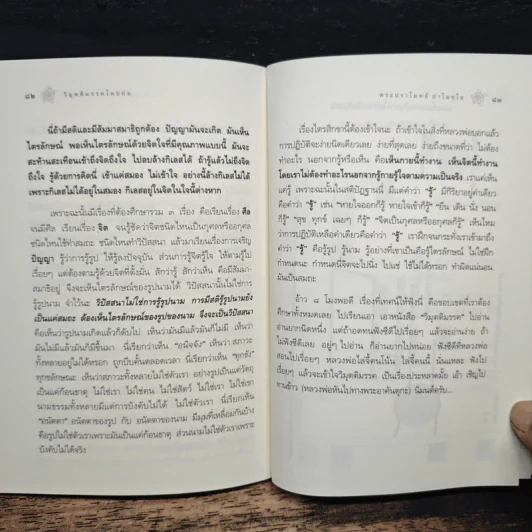 ๔๒ วิมุตติมรรคโดยย่อ
นี่ถ้ามีสติและมีสัมมาสมาธิถูกต้อง ปัญญามันจะเกิด มันเห็น
ไตรลักษณ์ พอเห็นไตรลักษณ์ด้วยจิตใจที่มีคุณภาพแบบนี้ มันจะ
สะท้านสะเทือนเข้าถึงจิตถึงใจ ไปลบล้างกิเลสได้ ถ้ารู้แล้วไม่ถึงจิต
ถึงใจ รู้ด้วยการคิดนี่ เข้าแค่สมอง ไม่เข้าใจ อย่างนี้ล้างกิเลสไม่ได้
เพราะกิเลสไม่ได้อยู่ในสมอง กิเลสอยู่ในจิตในใจนี้ต่างหาก
เพราะฉะนั้นมีเรื่องที่ต้องศึกษารวม ๓ เรื่อง คือเรียนเรื่อง ศีล
จนมีศีล เรียนเรื่อง จิต จนรู้ชัดว่าจิตชนิดไหนเป็นกุศลหรืออกุศล
ชนิดไหนใช้ทำสมถะ ชนิดไหนทำวิปัสสนา แล้วมาเรียนเรื่องการเจริญ
ปัญญา รู้ว่าการรู้รูป ให้รู้ลงปัจจุบัน ส่วนการรู้จิตรู้ใจ ให้ตามรู้ไป
เรื่อยๆ แต่ต้องตามรู้ด้วยจิตที่ตั้งมั่น สักว่ารู้ สักว่าเห็น คือมีสัมมา-
สมาธิอยู่ จึงจะเห็นไตรลักษณ์ของรูปนามได้ วิปัสสนานี้ไม่ใช่การรู้
รู้รูปนาม จำไว้นะ วิปัสสนาไม่ใช่การรู้รูปนาม การมีสติรู้รูปนามยัง
เป็นแค่สมถะ ต้องเห็นไตรลักษณ์ของรูปของนาม จึงจะเป็นวิปัสสนา
คือเห็นว่ารูปนามเกิดแล้วก็ดับไป เห็นว่ามันมีแล้วมันก็ไม่มี เห็นว่า
มันไม่มีแล้วมันก็มีขึ้นมา นี่เรียกว่าเห็น “อนิจจัง” เห็นว่า สภาวะ
ทั้งหลายอยู่ไม่ได้หรอก ถูกบีบคั้นตลอดเวลา นี่เรียกว่าเห็น “ทุกขัง”
ทุกขลักษณะ เห็นว่าสภาวะทั้งหลายไม่ใช่ตัวเรา อย่างรูปเป็นแค่วัตถุ
เป็นแค่ก้อนธาตุ ไม่ใช่เรา ไม่ใช่คน ไม่ใช่สัตว์ ไม่ใช่เรา ไม่ใช่เขา
นามธรรมทั้งหลายมีแค่การบังคับไม่ได้ ไม่ใช่ตัวเรา นี่เรียกเห็น
“อนัตตา” อนัตตาของรูป กับ อนัตตาของนาม มีมุมที่เหลื่อมกันบ้าง
คือรูปไม่ใช่ตัวเราเพราะมันเป็นแค่ก้อนธาตุ ส่วนนามไม่ใช่ตัวเราเพราะ
บังคับไม่ได้จริง
พระปราโมทย์ ปาโมชฺโช ๔๓
เรื่องไตรสิกขานี้ต้องเข้าใจนะ ถ้าเข้าใจในสิ่งที่หลวงพ่อบอกแล้ว
การปฏิบัติจะง่ายนิดเดียวเลย ง่ายที่สุดเลย ง่ายถึงขนาดที่ว่า ไม่ต้อง
ทำอะไร นอกจากรู้หรือเห็น คือ เห็นกายนี้ทำงาน เห็นจิตนี้ทำงาน
โดยเราไม่ต้องทำอะไรนอกจากรู้กายรู้ใจตามความเป็นจริง เราแค่เห็น
แค่รู้ เพราะฉะนั้นในสติปัฏฐานนี้ มีแต่คำว่า “รู้” มีกิริยาอยู่คำเดียว
คือคำว่า “รู้” เช่น “หายใจออกก็รู้ หายใจเข้าก็รู้” “ยืน เดิน นั่ง นอน
ก็รู้” “สุข ทุกข์ เฉยๆ ก็รู้” “จิตเป็นกุศลหรืออกุศลก็รู้” เห็นไหม
ว่าการปฏิบัติเหลือคำเดียวคือคำว่า “รู้” เราฝึกจนกระทั่งเราเข้ามาถึง
คำว่า “รู้” คือรู้รูป รู้นาม รู้อย่างที่เขาเป็นคือรู้ไตรลักษณ์ ไม่ใช่ฝึก
กำหนดนะ กำหนดนี่จิตจะไปนิ่ง ไปแช่ ใช้ไม่ได้หรอก ทำผิดแน่นอน
มันเป็นสมถะ
อ้าว ๘ โมงพอดี เรื่องที่เทศน์ให้ฟังนี่ คือขอบเขตที่เราต้อง
ศึกษาทั้งหมดเลย ไปเรียนเอา เอาหนังสือ “วิมุตติมรรค” ไปอ่าน
อ่านยากนิดหนึ่ง แต่ถ้าอดทนฟังซีดีไปเรื่อยๆ แล้วจะอ่านง่าย ถ้า
ไม่ฟังซีดีเลย อยู่ๆ ไปอ่าน ก็อ่านยากไปหน่อย ฟังซีดีที่หลวงพ่อ
สอนไปเรื่อยๆ หลวงพ่อไล่จี้คนโน้น ไล่จี้คนนี้ นั่นแหละ ฟังไป
เรื่อยๆ แล้วจะเข้าใจวิมุตติมรรค เป็นเรื่องประหลาดมั้ย เอ้า เชิญไป
ทานข้าว (หลวงพ่อหันไปทางพระอาคันตุกะ) นิมนต์ครับ...